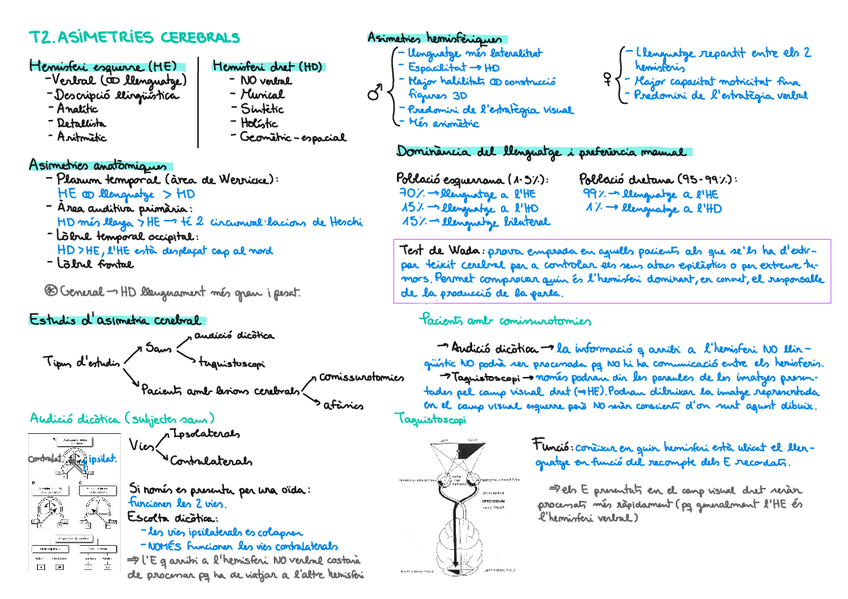 T2. ASIMETRIES CEREBRALS
Hemisferi esquerre (HE)
- Verbal (∞ llenguatge)
- Descripció llingüística
- Analític
- Detallista
- Aritmètic
Hemisferi dret (HD)
- NO verbal
- Musical
- Sintètic
- Holístic
- Geomètric-espacial
Asimetries anatòmiques
- Planum temporal (àrea de Wernicke):
HE ∞ llenguatge > HD
- Àrea auditiva primària:
HD més llarga > HE → té 2 circumval·lacions de Heschl
- Lòbul temporal occipital:
HD > HE, l'HE està desplaçat cap al nord
- Lòbul frontal
⊛ General → HD lleugerament més gran i pesat.
Estudis d'asimetria cerebral
Tipus d'estudis
Sans
audició dicòtica
taquistoscopi
Pacients amb lesions cerebrals
comissurotomies
afàsics
Audició dicòtica (subjectes sans)
contralat.
ipsilat.
Vies
Ipsolaterals
Contralaterals
Si només es presenta per una oïda:
funcionen les 2 vies.
Escolta dicòtica:
- les vies ipsilaterals es colapsen
- NOMÉS funcionen les vies contralaterals
⇒ l'E q arriba a l'hemisferi NO verbal costarà
de processar pq ha de viatjar a l'altre hemisferi
Asimetries hemisfèriques
♂
- Llenguatge més lateralitat
- Espacilitat → HD
- Major habilitats ∞ construcció
figures 3D
- Predomini de l'estratègia visual
- Més asimètric
♀
- Llenguatge repartit entre els 2
hemisferis
- Major capacitat motricitat fina
- Predomini de l'estratègia verbal
Dominància del llenguatge i preferència manual
Població esquerrana (1-5%):
70% → llenguatge a l'HE
15% → llenguatge a l'HD
15% → llenguatge bilateral
Població dretana (95-99%):
99% → llenguatge a l'HE
1% → llenguatge a l'HD
Test de Wada: prova emprada en aquells pacients als que se'ls ha d'extir-
par teixit cerebral per a controlar els seus atacs epilèptics o per extreure tu-
mors. Permet comprovar quin és l'hemisferi dominant, en concret, el responsable
de la producció de la parla.
Pacients amb comissurotomies
→ Audició dicòtica → la informació q arribi a l'hemisferi NO llin-
güístic NO podrà ser processada pq NO hi ha comunicació entre els hemisferis.
→ Taquistoscopi → només podran dir les paraules de les imatges presen-
tades pel camp visual dret (→HE). Podran dibuixar la imatge representada
en el camp visual esquerre però NO seran conscients d'on surt aquest dibuix.
Taquistoscopi
Funció: conèixer en quin hemisferi està ubicat el llen-
guatge en funció del recompte dels E recordats.
⇒ els E presentats en el camp visual dret seran
processats més ràpidament (pq generalment l'HE és
l'hemisferi verbal)